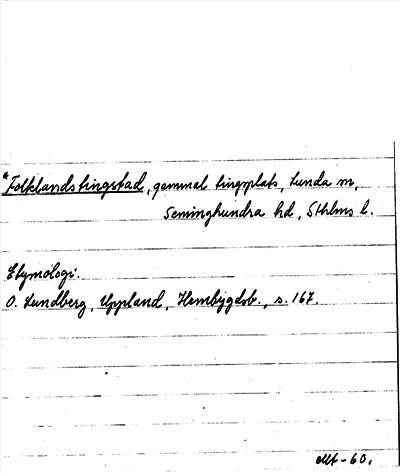 *Folklandstingstad, gammal tingplats, Lunda sn,
Seminghundra hd, Sthlms l.
Etymologi.
O. Lundberg, Uppland, Hembygdsb., s. 167.
-60.